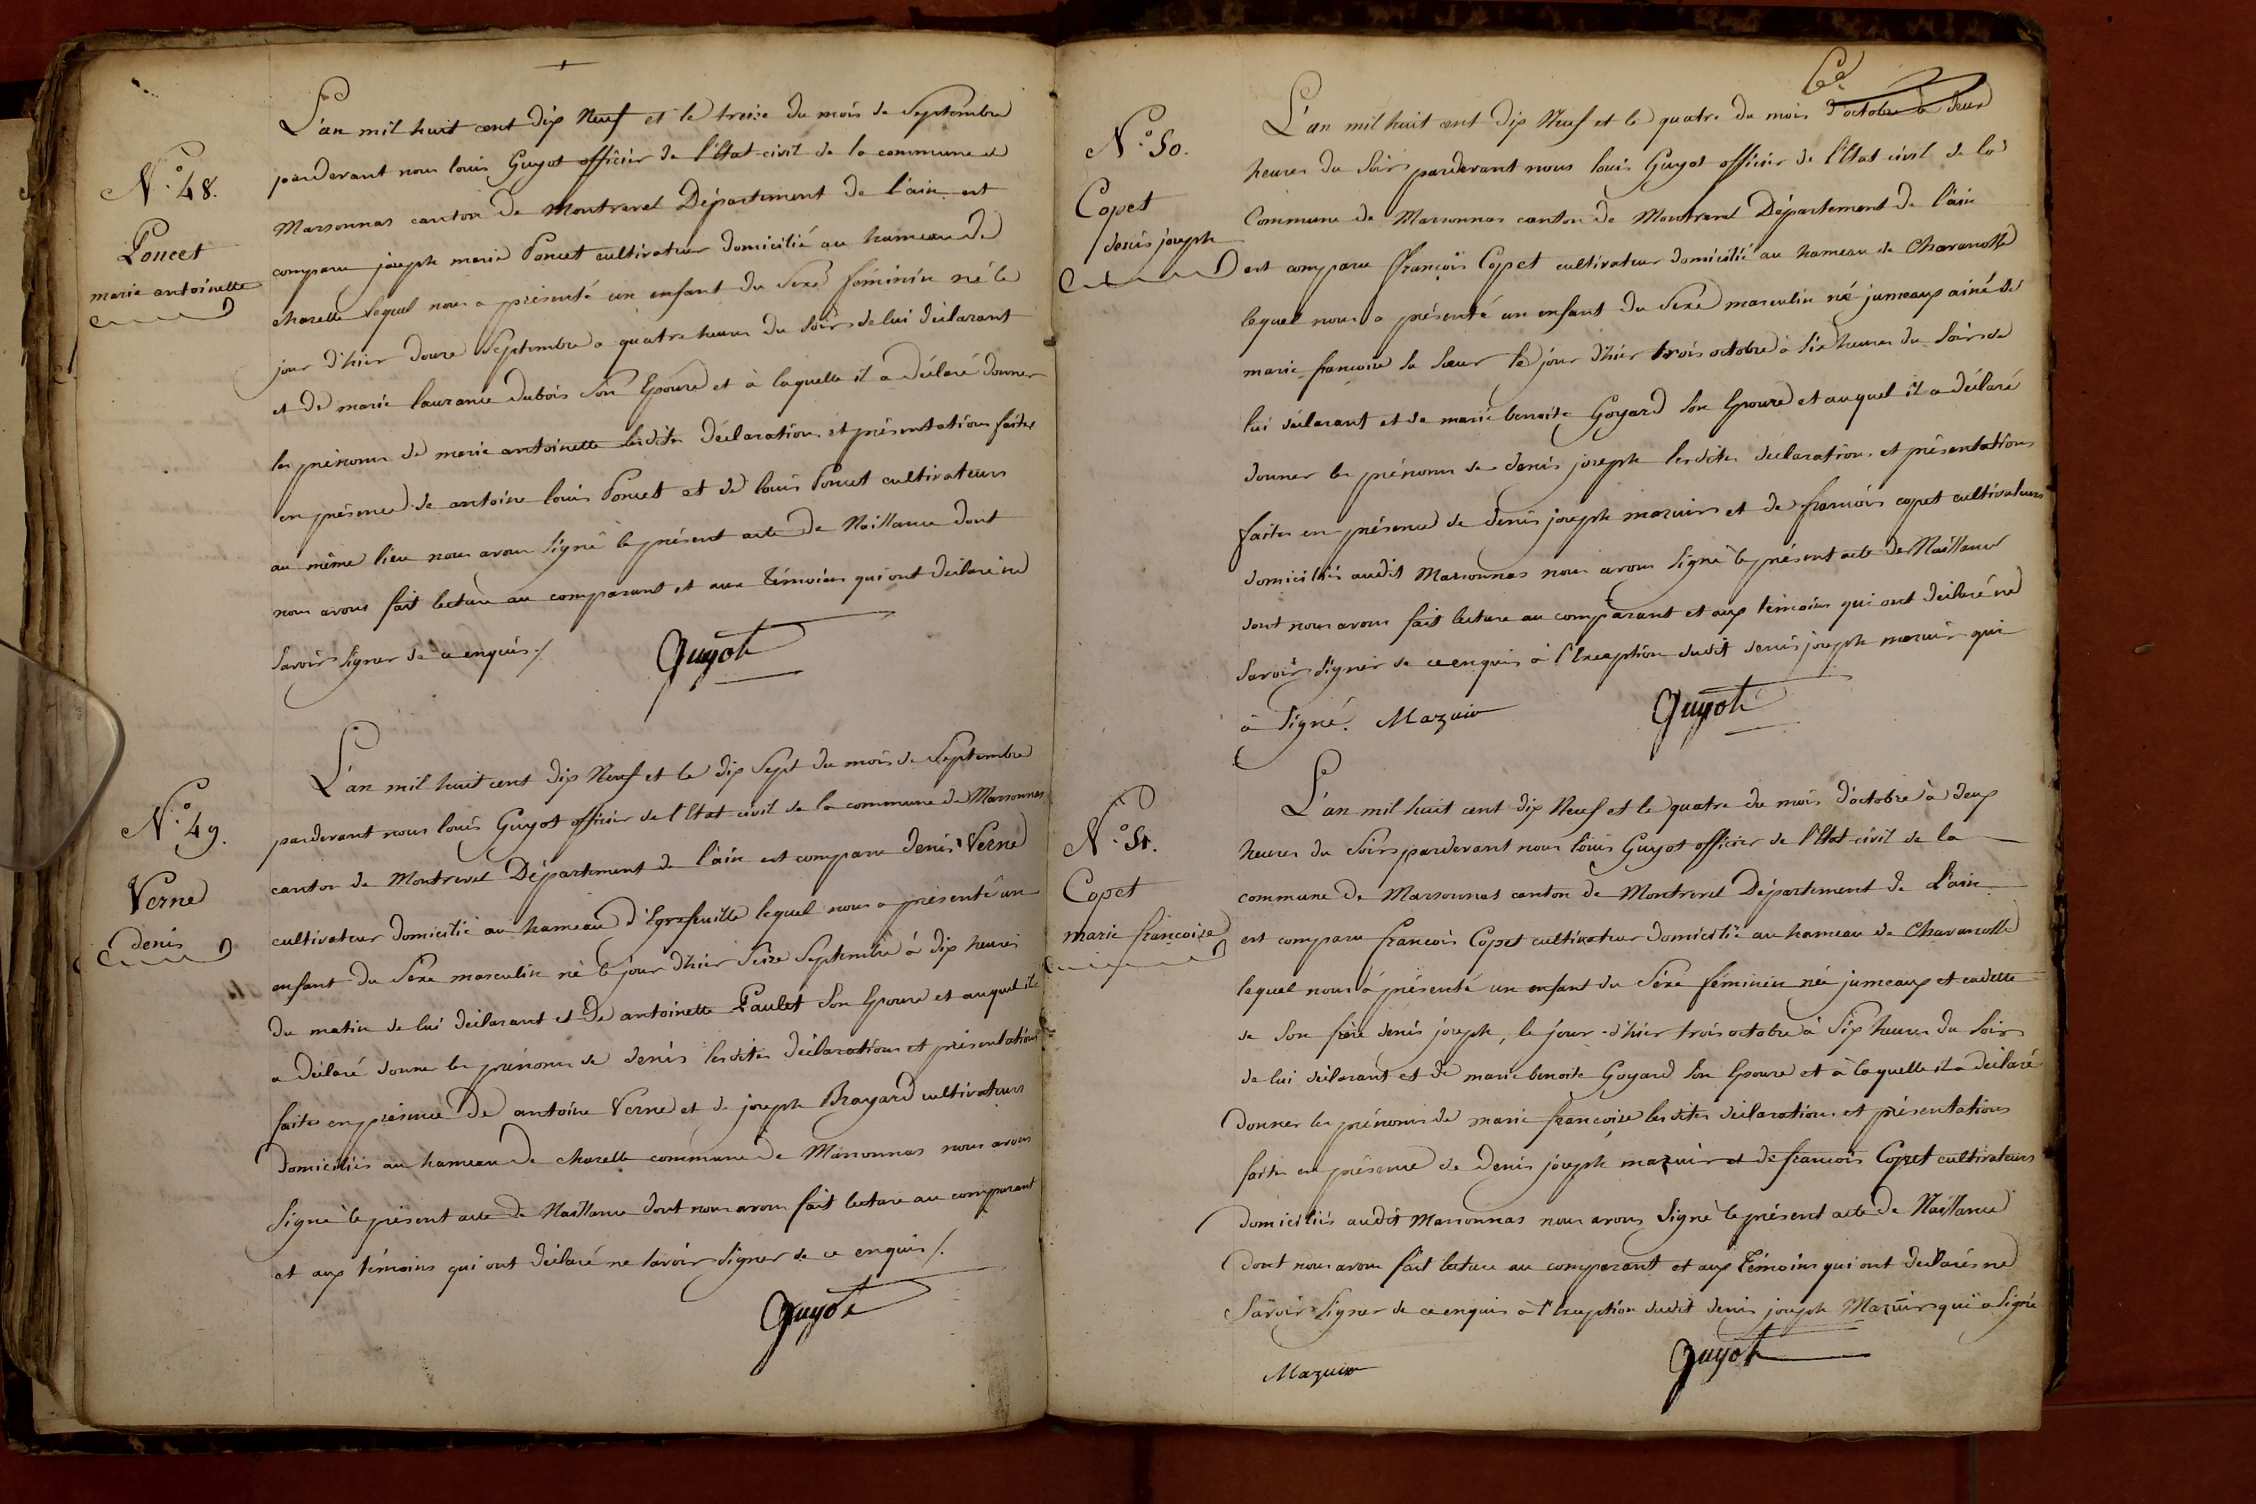 N.° 48.
Poncet
marie antoinette
L'an mil huit cent dix Neuf et le treize du mois de Septembre
pardevant nous louis Guyot officier de l'Etat-civil de la commune de
Marsonnas canton de Montrevel Département de l'ain est
comparu joseph marie Poncet cultivateur domicilié au hameau de
chazelle lequel nous a présenté un enfant du Sexe féminin né le
jour d'hier douze Septembre a quatre heures du Soir de lui déclarant
et de marie laurance dubois Son Epouse et à laquelle il a déclaré donner
les prénoms de marie antoinette lesdites déclaration et présentation faites
en présence de antoine louis Poncet et de louis Poncet cultivateurs
au même lieu nous avons Signé le présent acte de Naissance dont
nous avons fait lecture au comparant et aux témoins qui ont déclaré ne
Savoir Signer de ce enquis ./.
Guyot
N.° 49.
Verne
denis
L'an mil huit cent dix Neuf et le dix Sept du mois de Septembre
pardevant nous louis Guyot officier de l'Etat-civil de la commune de Marsonnas
canton de Montrevel Département de l'ain est comparu denis Verne
cultivateur domicilié au hameau d'Egrefeuille lequel nous a présenté un
enfant du Sexe masculin né le jour d'hier Seize Septembre à dix heures
du matin de lui déclarant et de antoinette Paulet Son Epouse et auquel il
a déclaré donner les prénoms de denis lesdites déclaration et présentation
faites en présence de antoine Verne et de joseph Brayard cultivateurs
domiciliés au hameau de chazelle commune de Marsonnas nous avons
Signé le présent acte de Naissance dont nous avons fait lecture au comparant
et aux témoins qui ont déclaré ne Savoir Signer de ce enquis ./.
Guyot
N.° 50.
Copet
denis joseph
L'an mil huit cent dix Neuf et le quatre du mois d'octobre à deux
heures du Soir pardevant nous louis Guyot officier de l'Etat-civil de la
Commune de Marsonnas canton de Montrevel Département de l'ain
est comparu françois Copet cultivateur domicilié au hameau de Chavanolle
lequel nous a présenté un enfant du Sexe masculin né jumeaux ainé de
marie françoise sa Sœur le jour d'hier trois octobre à Six heures du Soir de
lui déclarant et de marie benoite Goyard Son Epouse et auquel il a déclaré
donner les prénoms de denis joseph lesdites déclaration et présentation
faites en présence de denis joseph mazuir et de françois copet cultivateurs
domiciliés audit Marsonnas nous avons Signé le présent acte de Naissance
dont nous avons fait lecture au comparant et aux témoins qui ont déclaré ne
Savoir Signer de ce enquis à l'Exception dudit denis joseph mazuir qui
à Signé. Mazuir
Guyot
N.° 51.
Copet
marie françoise
L'an mil huit cent dix Neuf et le quatre du mois d'octobre à deux
heures du Soir pardevant nous louis Guyot officier de l'Etat-civil de la
commune de Marsonnas canton de Montrevel Département de L'ain
est comparu francois Copet cultivateur domicilié au hameau de Chavanolle
lequel nous à présenté un enfant du Sexe féminin née jumeaux et cadette
de Son frère denis joseph, le jour d'hier trois octobre à Six heures du Soir
de lui déclarant et de marie benoite Goyard Son Epouse et à laquelle il a déclaré
donner les prénoms de marie françoise lesdites déclaration et présentation
faites en présence de Denis joseph mazuir et de francois Copet cultivateurs
domiciliés audit Marsonnas nous avons Signé le présent acte de Naissance
dont nous avons fait lecture au comparant et aux témoins qui ont déclarés ne
Savoir Signer de ce enquis à l'Exception dudit denis joseph Mazuir qui a Signé
Mazuir
Guyot